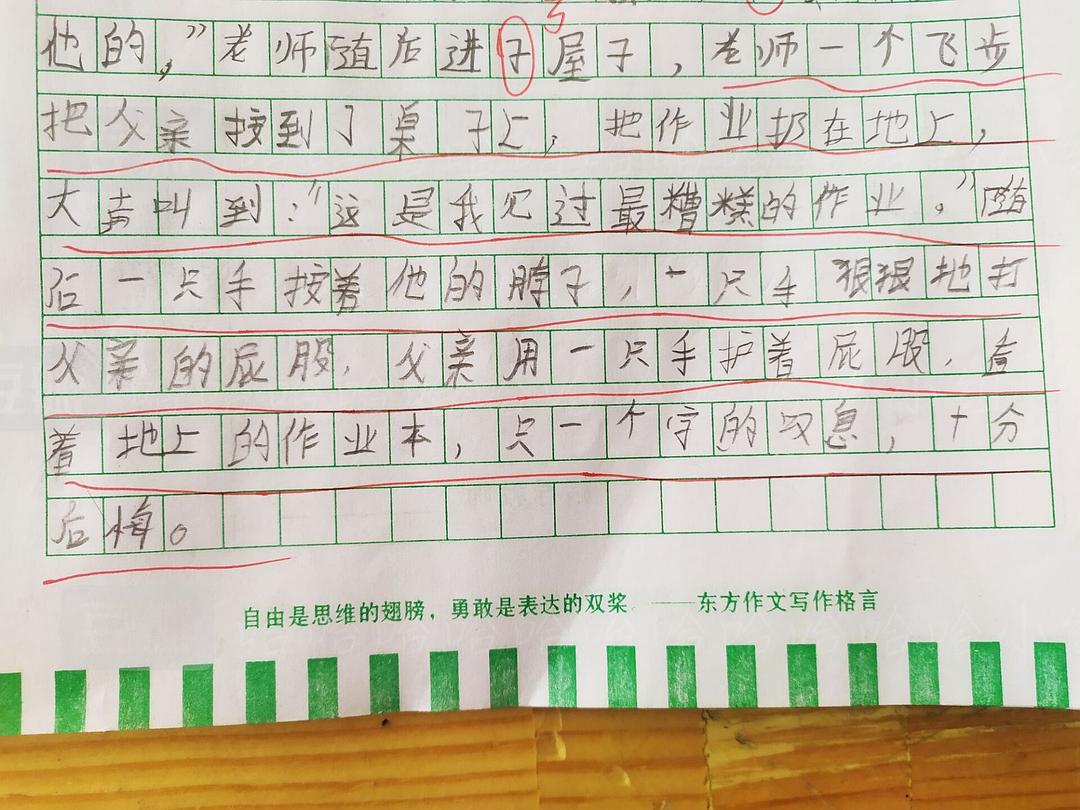 他的，”老师随后进子屋子，老师一个飞步
把父亲按到了桌子上，把作业扔在地上，
大声叫到：“这是我见过最糟糕的作业。”随
后一只手按着他的脖子，一只手狠狠地打
父亲的屁股，父亲用一只手护着屁股，看
着地上的作业本，只一个字的叹息，十分
后悔。
自由是思维的翅膀，勇敢是表达的双桨。——东方作文写作格言